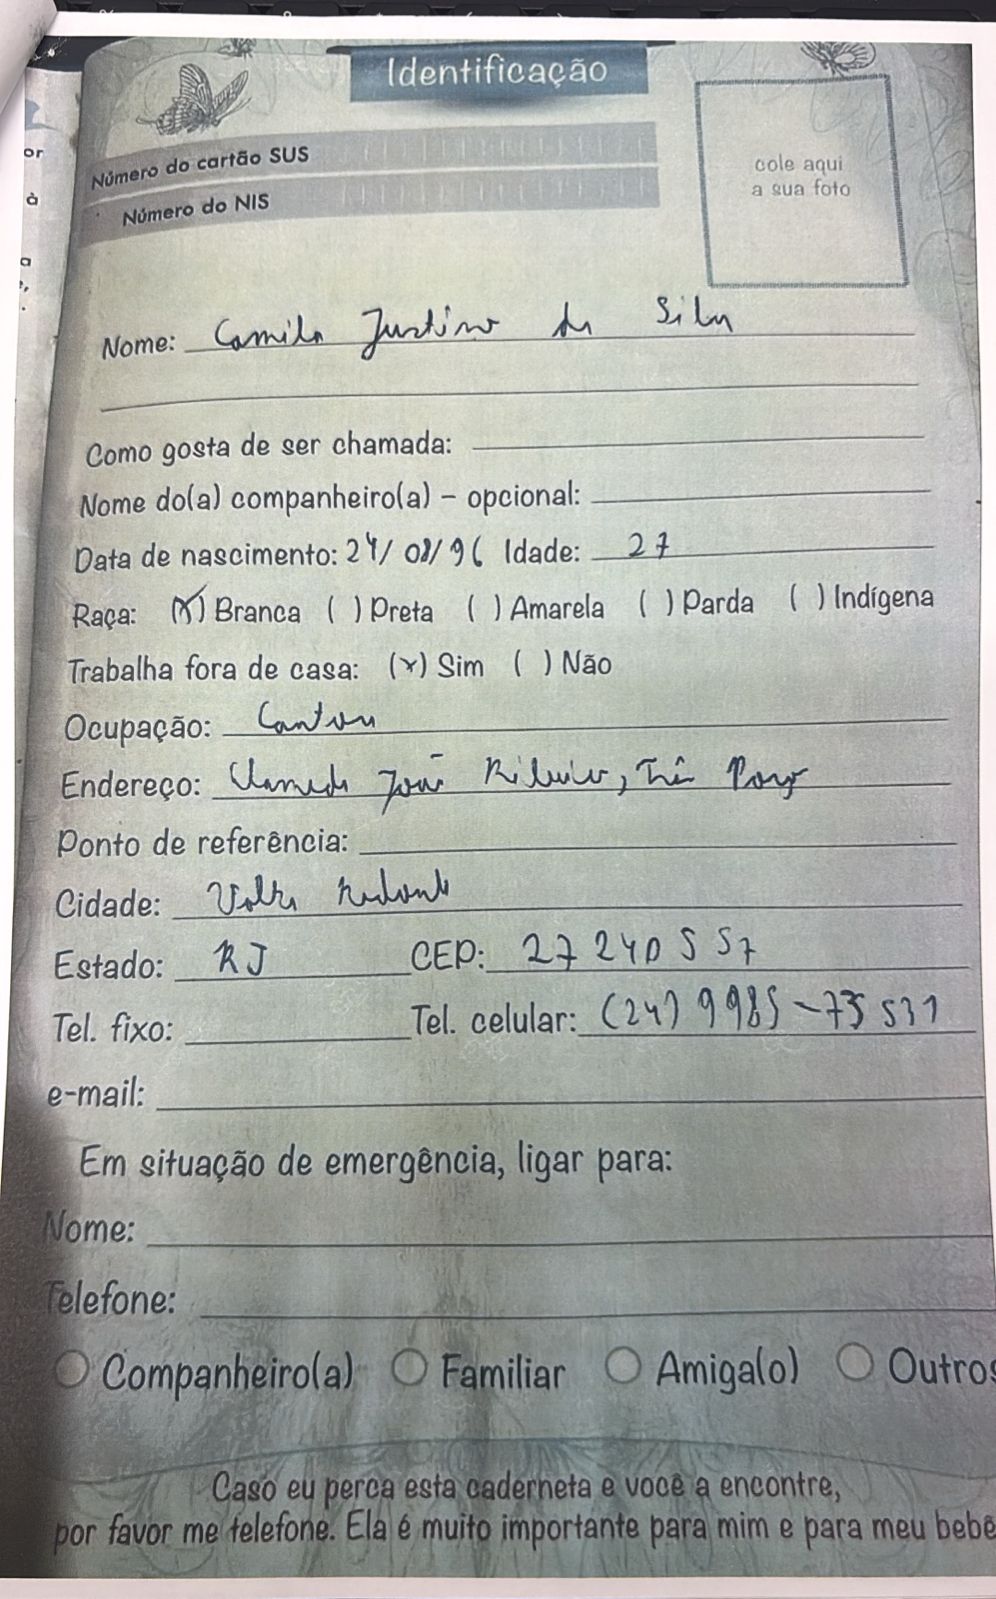 Identificação
or
Número do cartão SUS
cole aqui
a sua foto
à
Número do NIS
a
Nome: Camila Justino da Silva
Como gosta de ser chamada:
Nome do(a) companheiro(a) - opcional:
Data de nascimento: 24/08/96 Idade: 27
Raça: (X) Branca ( ) Preta ( ) Amarela ( ) Parda ( ) Indígena
Trabalha fora de casa: (x) Sim ( ) Não
Ocupação: Cantora
Endereço: Alameda João Ribeiro, Três Poços
Ponto de referência:
Cidade: Volta Redonda
Estado: RJ CEP: 27240557
Tel. fixo: Tel. celular: (24) 9985-73531
e-mail:
Em situação de emergência, ligar para:
Nome:
Telefone:
Companheiro(a) Familiar Amiga(o) Outros
Caso eu perca esta caderneta e você a encontre,
por favor me telefone. Ela é muito importante para mim e para meu bebê